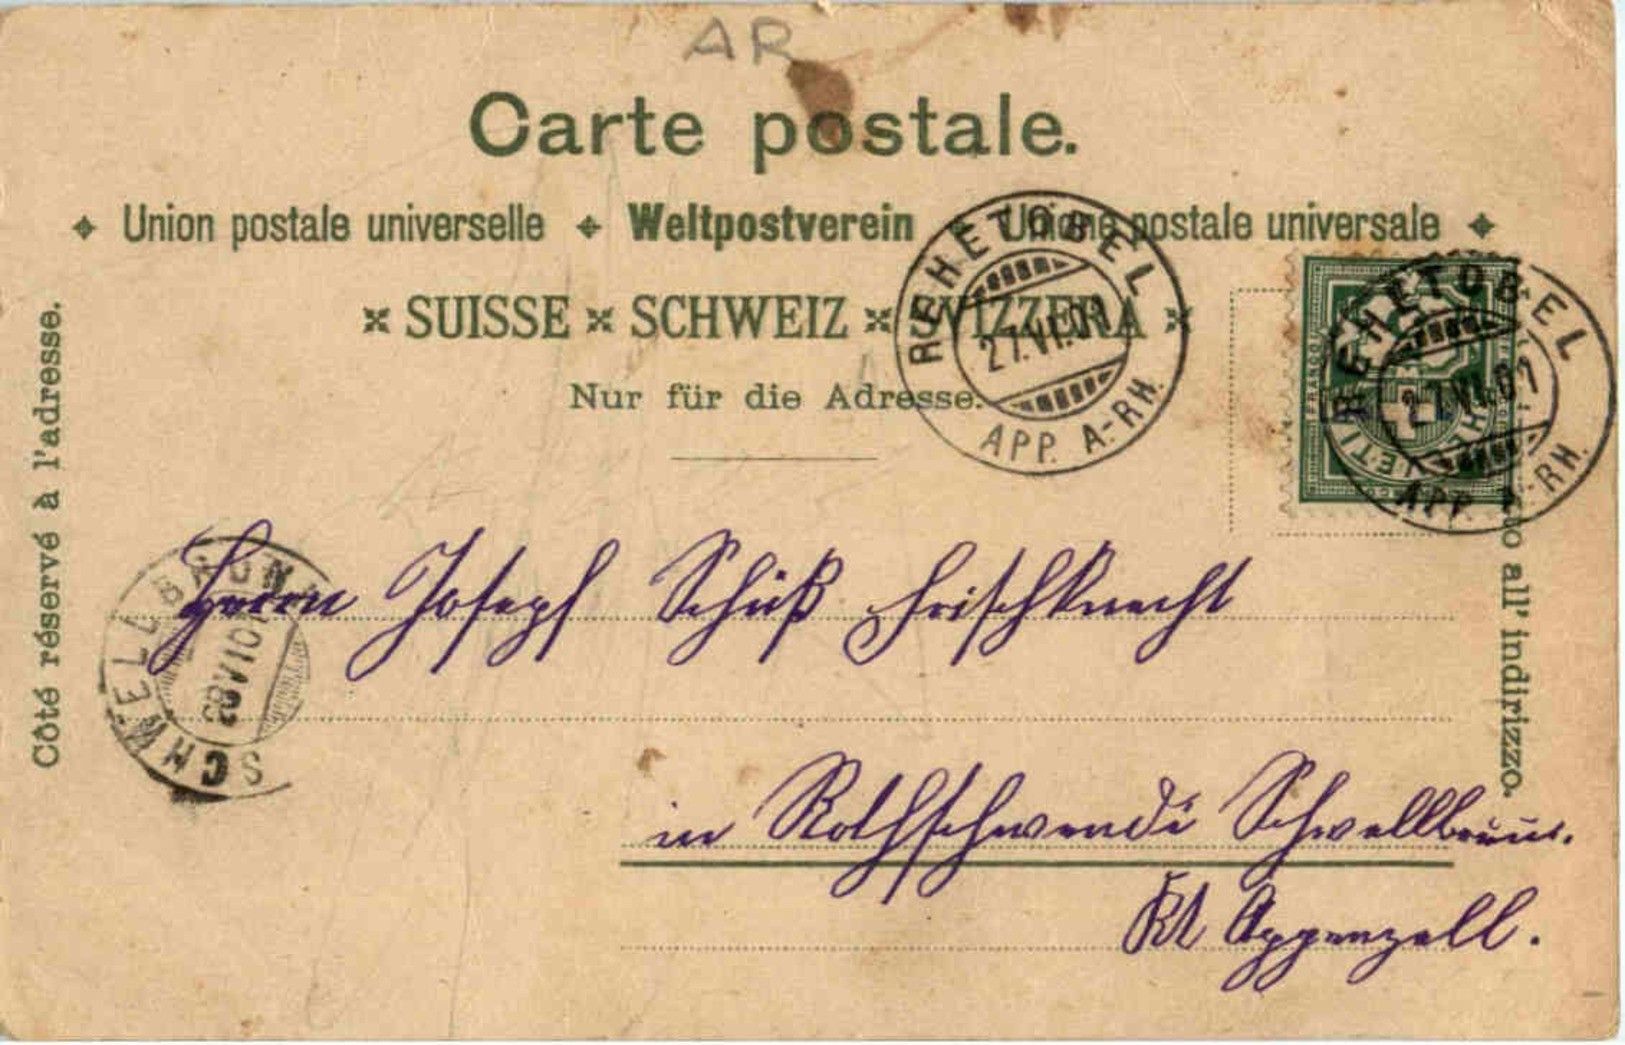 AR
Carte postale.
Union postale universelle Weltpostverein Unione postale universale
SUISSE SCHWEIZ SVIZZERA
Nur für die Adresse.
Côté réservé à l'adresse.
all' indirizzo.
REHETOBEL
27.VI.01
APP. A.-RH.
REHETOBEL
27.VI.01
APP. A.-RH.
FRANCO
SCHWELLBRUNN
Herrn Josef Schüß Frischknecht
in Rothschwendi Schwellbrunn.
Kt Appenzell.